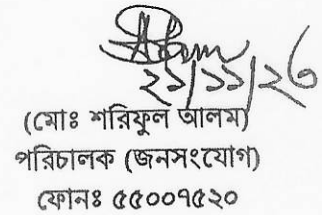 ২১/১১/২৩
(মোঃ শরিফুল আলম)
পরিচালক (জনসংযোগ)
ফোনঃ ৫৫০০৭৫২০